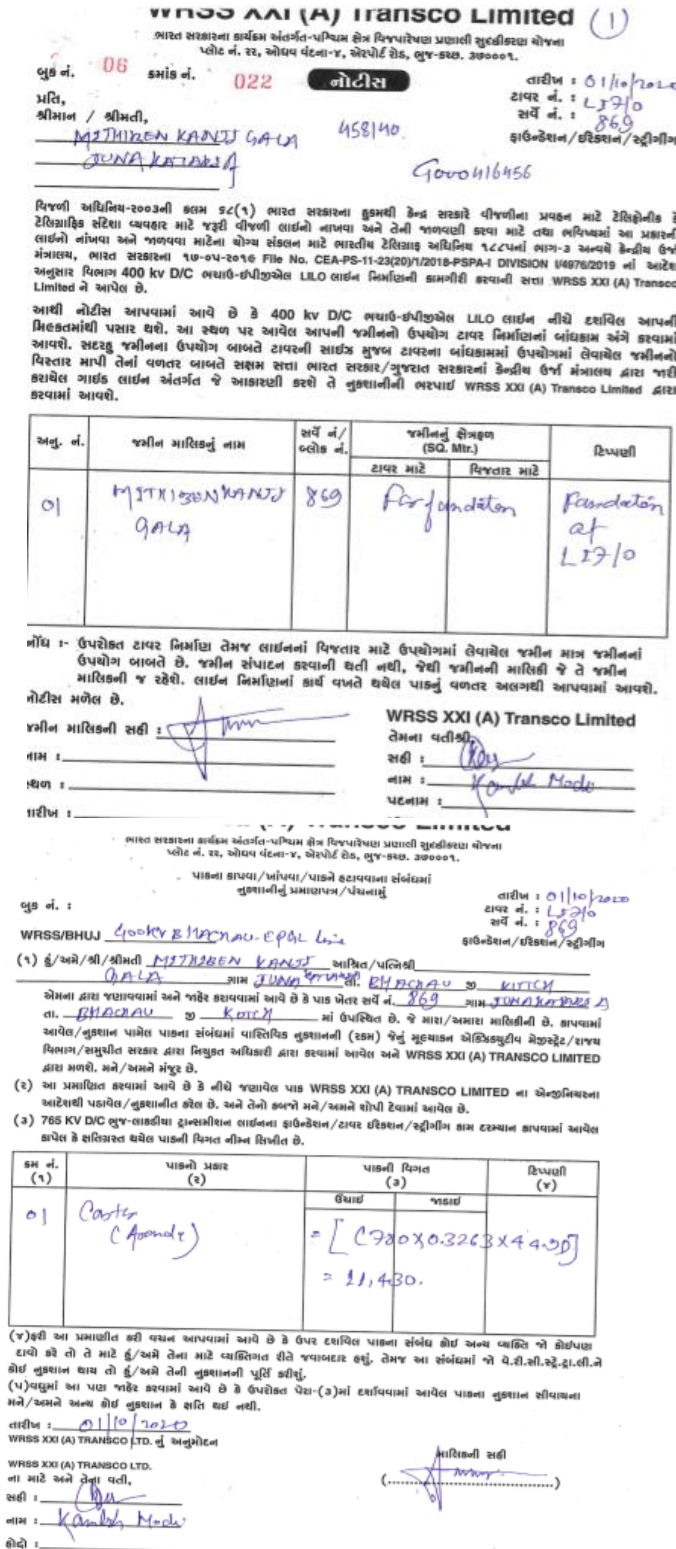 WRSS XXI (A) Transco Limited
(1)
ભારત સરકારના કાર્યક્રમ અંતર્ગત-પશ્ચિમ ક્ષેત્ર વિજપારેષણ પ્રણાલી સુદ્રઢીકરણ યોજના
પ્લોટ નં. ૨૨, ઓધવ વંદના-૪, એરપોર્ટ રોડ, ભુજ-કચ્છ. ૩૭૦૦૦૧.
બુક નં. 06 ક્રમાંક નં. 022 નોટીસ તારીખ : 01/10/2020
પ્રતિ, ટાવર નં. : L37/0
શ્રીમાન / શ્રીમતી, સર્વે નં. : 869
MITHIBEN KANJI GALA 458/40 ફાઉન્ડેશન/ઈરેકશન/સ્ટ્રીંગીંગ
JUNA KATARIA
વિજળી અધિનિયમ-૨૦૦૩ની કલમ ૬૮(૧) ભારત સરકારના હુકમથી કેન્દ્ર સરકારે વીજળીના પ્રવહન માટે ટેલિફોનીક કે
ટેલિગ્રાફિક સંદેશા વ્યવહાર માટે જરૂરી વીજળી લાઇનો નાખવા અને તેની જાળવણી કરવા માટે તથા ભવિષ્યમાં આ પ્રકારની
લાઈનો નાંખવા અને જાળવવા માટેના યોગ્ય સંકલન માટે ભારતીય ટેલિગ્રાફ અધિનિયમ ૧૮૮૫નાં ભાગ-૩ અન્વયે કેન્દ્રીય ઉર્જા
મંત્રાલય, ભારત સરકારના ૧૭-૦૫-૨૦૧૯ File No. CEA-PS-11-23(20)/1/2018-PSPA-I DIVISION I/4976/2019 નાં આદેશ
અનુસાર વિભાગ 400 kv D/C ભચાઉ-ઈપીજીએલ LILO લાઈન નિર્માણની કામગીરી કરવાની સત્તા WRSS XXI (A) Transco
Limited ને આપેલ છે.
આથી નોટીસ આપવામાં આવે છે કે 400 kv D/C ભચાઉ-ઈપીજીએલ LILO લાઈન નીચે દર્શાવેલ આપની
મિલ્કતમાંથી પસાર થશે. આ સ્થળ પર આવેલ આપની જમીનનો ઉપયોગ ટાવર નિર્માણનાં બાંધકામ અંગે કરવામાં
આવશે. સદરહુ જમીનના ઉપયોગ બાબતે ટાવરની સાઈઝ મુજબ ટાવરના બાંધકામમાં ઉપયોગમાં લેવાયેલ જમીનનો
વિસ્તાર માપી તેનાં વળતર બાબતે સક્ષમ સત્તા ભારત સરકાર/ગુજરાત સરકારનાં કેન્દ્રીય ઉર્જા મંત્રાલય દ્વારા જારી
કરાયેલ ગાઈડ લાઈન અંતર્ગત જે આકારણી કરશે તે નુકશાનીની ભરપાઈ WRSS XXI (A) Transco Limited દ્વારા
કરવામાં આવશે.
અનુ. નં. જમીન માલિકનું નામ સર્વે નં/ બ્લોક નં. જમીનનું ક્ષેત્રફળ (SQ. Mtr.) ટિપ્પણી
ટાવર માટે વિજતાર માટે
01 MITHIBEN KANJI GALA 869 For fundation Fandation at L37/0
નોંધ :- ઉપરોકત ટાવર નિર્માણ તેમજ લાઈનનાં વિજતાર માટે ઉપયોગમાં લેવાયેલ જમીન માત્ર જમીનનાં
ઉપયોગ બાબતે છે. જમીન સંપાદન કરવાની થતી નથી, જેથી જમીનની માલિકી જે તે જમીન
માલિકની જ રહેશે. લાઈન નિર્માણનાં કાર્ય વખતે થયેલ પાકનું વળતર અલગથી આપવામાં આવશે.
નોટીસ મળેલ છે.
WRSS XXI (A) Transco Limited
જમીન માલિકની સહી : તેમના વતીશ્રી,
સહી :
નામ : નામ : Kamlesh Modi
સ્થળ : પદનામ :
તારીખ :
(A) Transco Limited
ભારત સરકારના કાર્યક્રમ અંતર્ગત-પશ્ચિમ ક્ષેત્ર વિજપારેષણ પ્રણાલી સુદ્રઢીકરણ યોજના
પ્લોટ નં. ૨૨, ઓધવ વંદના-૪, એરપોર્ટ રોડ, ભુજ-કચ્છ. ૩૭૦૦૦૧.
પાકના કાપવા/ખાંપવા/પાકને હટાવવાના સંબંધમાં
નુકશાનીનું પ્રમાણપત્ર/પંચનામું
બુક નં. : તારીખ : 01/10/2020
ટાવર નં. : L37/0
સર્વે નં. : 869
WRSS/BHUJ 400KV BHACHAU-EPGL line ફાઉન્ડેશન/ઈરેકશન/સ્ટ્રીંગીંગ
(૧) હું/અમે/શ્રી/શ્રીમતી MITHIBEN KANJI આશ્રિત/પત્નિશ્રી
GALA ગામ JUNA KATARIA તા. BHACHAU જી KUTCH
એમના દ્વારા જણાવવામાં અને જાહેર કરાવવામાં આવે છે કે પાક ખેતર સર્વે નં. 869 ગામ JUNA KATARIA
તા. BHACHAU જી KUTCH માં ઉપસ્થિત છે. જે મારા/અમારા માલિકીની છે. કાપવામાં
આવેલ/નુકશાન પામેલ પાકના સંબંધમાં વાસ્તિવિક નુકશાનની (રકમ) જેનું મૂલ્યાકન એક્ઝિક્યુટીવ મેજીસ્ટ્રેટ/રાજ્ય
વિભાગ/સમુચીત સરકાર દ્વારા નિયુકત અધિકારી દ્વારા કરવામાં આવેલ અને WRSS XXI (A) TRANSCO LIMITED
દ્વારા મળશે. મને/અમને મંજુર છે.
(૨) આ પ્રમાણિત કરવામાં આવે છે કે નીચે જણાવેલ પાક WRSS XXI (A) TRANSCO LIMITED ના એન્જીનિયરના
આદેશથી પડાવેલ/નુકશાનીત કરેલ છે. અને તેનો કબજો મને/અમને શોપી દેવામાં આવેલ છે.
(૩) 765 KV D/C ભુજ-લાકડીયા ટ્રાન્સમીશન લાઈનના ફાઉન્ડેશન/ટાવર ઈરેકશન/સ્ટ્રીંગીંગ કામ દરમ્યાન કાપવામાં આવેલ
કાપેલ કે ક્ષતિગ્રસ્ત થયેલ પાકની વિગત નીમ્ન લિખીત છે.
ક્રમ નં. (૧) પાકનો પ્રકાર (૨) પાકની વિગત (૩) ટિપ્પણી (૪)
ઉંચાઈ જાડાઈ
01 Caster (Aronda) = [(780 X 0.3263 X 44.90]
= 11,430.
(૪)ફરી આ પ્રમાણીત કરી વચન આપવામાં આવે છે કે ઉપર દર્શાવેલ પાકના સંબંધ કોઈ અન્ય વ્યક્તિ જો કોઈપણ
દાવો કરે તો તે માટે હું/અમે તેના માટે વ્યક્તિગત રીતે જવાબદાર હશું. તેમજ આ સંબંધમાં જો વે.રી.સી.સ્ટ્રે.ટ્રા.લી.ને
કોઈ નુકશાન થાય તો હું/અમે તેની નુકશાનની પૂર્તિ કરીશું.
(૫)વધુમાં આ પણ જાહેર કરવામાં આવે છે કે ઉપરોક્ત પેરા-(૩)માં દર્શાવવામાં આવેલ પાકના નુકશાન સીવાયના
મને/અમને અન્ય કોઈ નુકશાન કે ક્ષતિ થઈ નથી.
તારીખ : 01/10/2020
WRSS XXI (A) TRANSCO LTD. નું અનુમોદન
માલિકની સહી
WRSS XXI (A) TRANSCO LTD.
ના માટે અને તેના વતી, (..............................)
સહી :
નામ : Kamlesh Modi
હોદો :